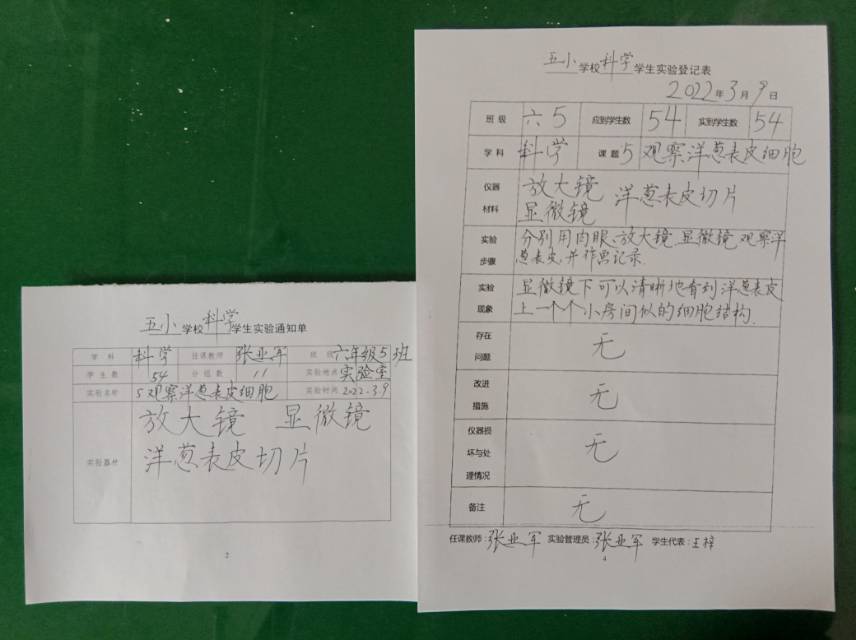 五小学校科学学生实验通知单
学科 科学 任课教师 张亚军 班级 六年级5班
学生数 54 分组数 11 实验地点 实验室
实验名称 5观察洋葱表皮细胞 实验时间 2022.3.9
实验器材 放大镜 显微镜
洋葱表皮切片
2
五小学校科学学生实验登记表
2022年3月9日
班级 六5 应到学生数 54 实到学生数 54
学科 科学 课题 5观察洋葱表皮细胞
仪器材料 放大镜 洋葱表皮切片
显微镜
实验步骤 分别用肉眼、放大镜、显微镜观察洋
葱表皮,并作画记录.
实验现象 显微镜下可以清晰地看到洋葱表皮
上一个个小房间似的细胞结构.
存在问题 无
改进措施 无
仪器损坏与处理情况 无
备注 无
任课教师:张亚军 实验管理员:张亚军 学生代表:王梓
4